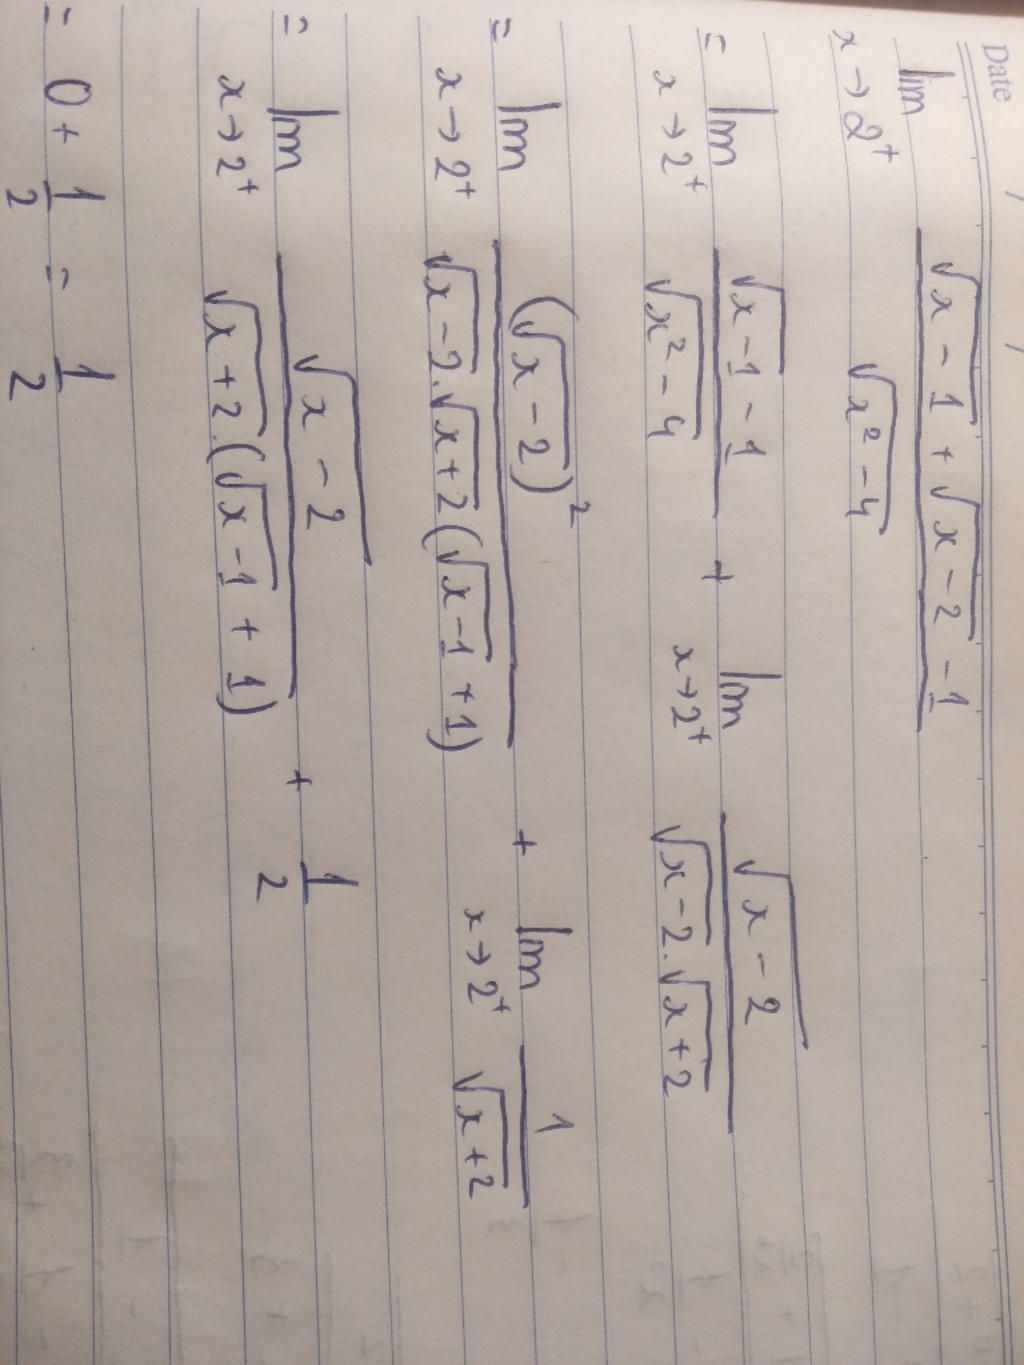 Date / /
lim x→2⁺ (√(x-1) + √(x-2) - 1) / √(x²-4)
= lim x→2⁺ (√(x-1) - 1) / √(x²-4) + lim x→2⁺ √(x-2) / (√(x-2).√(x+2))
= lim x→2⁺ (√(x-2))² / (√(x-2).√(x+2)(√(x-1)+1)) + lim x→2⁺ 1 / √(x+2)
= lim x→2⁺ √(x-2) / (√(x+2).(√(x-1)+1)) + 1/2
= 0 + 1/2 = 1/2